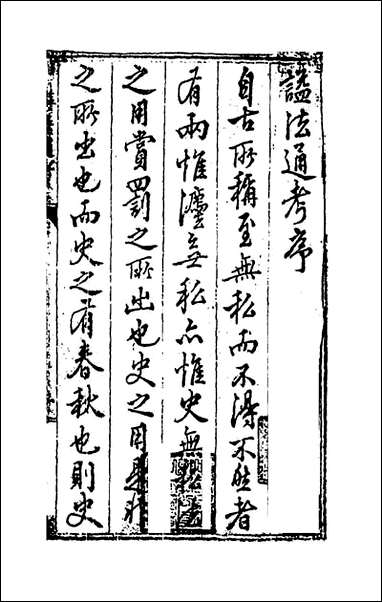 諡法通考序
自古所稱至無私而不得不然者
有兩惟灋無私亦惟史無私法
之用賞罰之所出也史之用是非
之所出也而史之有春秋也則史